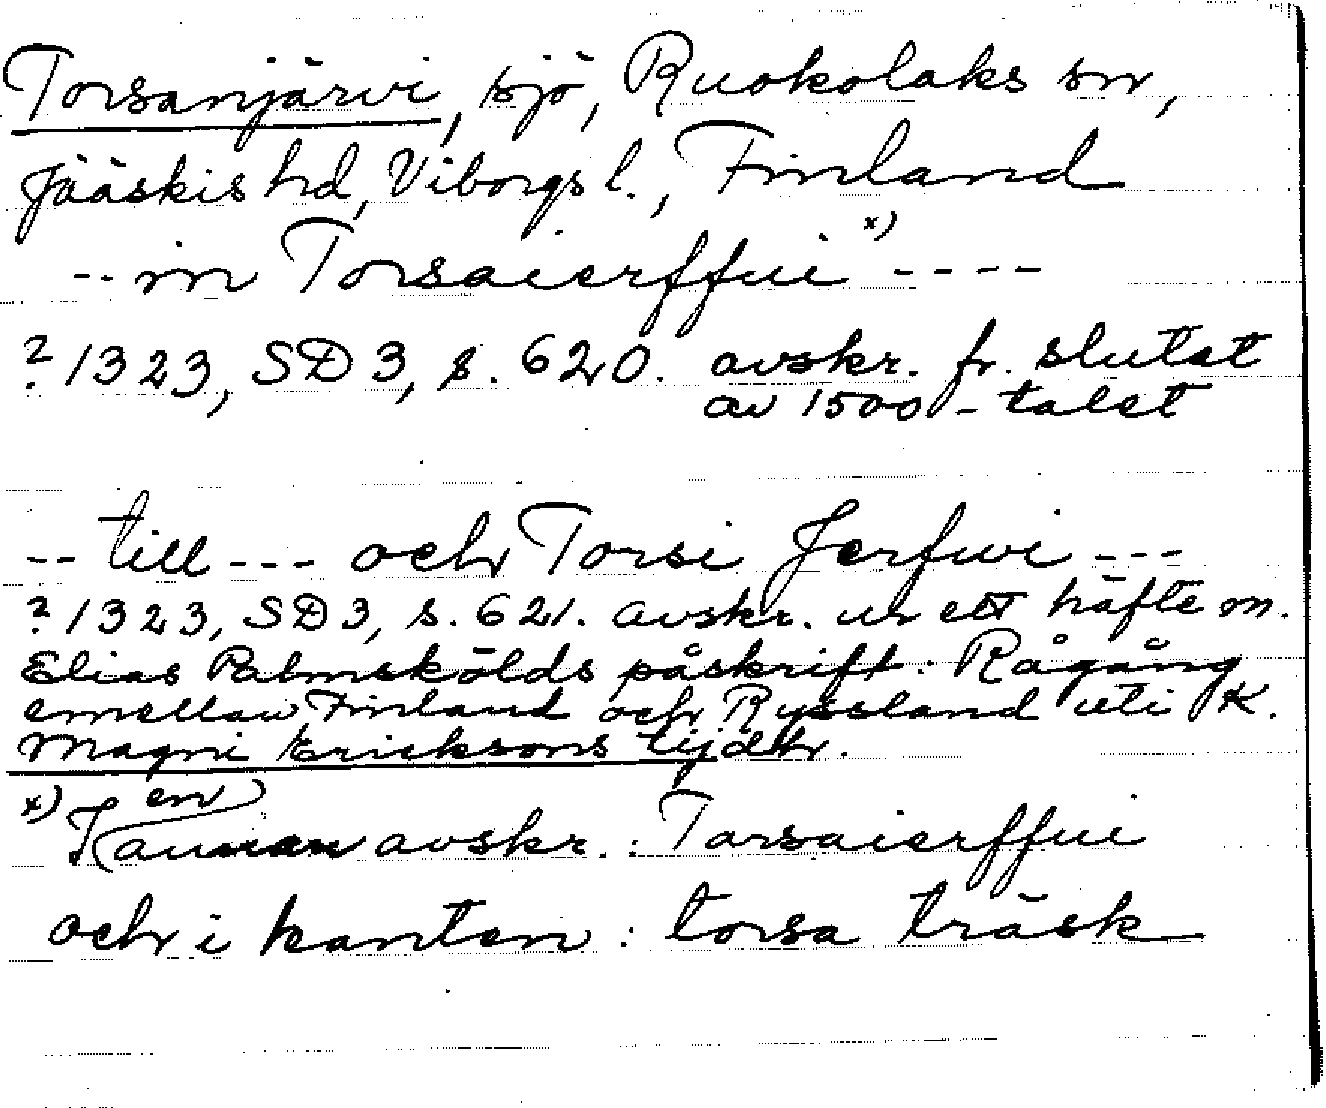 Torsanjärvi, sjö, Ruokolaks sn,
Jääskis hd, Viborgs l., Finland
-- in Torsaierffui x) ----
? 1323, SD 3, s. 620. avskr. fr. slutet
av 1500-talet
-- till --- och Torsi Jerfwi ---
? 1323, SD 3, s. 621. avskr. ur ett häfte m.
Elias Palmskölds påskrift: Rågång
emellan Finland och Ryssland uti K.
Magni Ericksons tijdhr.
x) en
avskr.: Tarsaierffui
och i kanten: torsa träsk